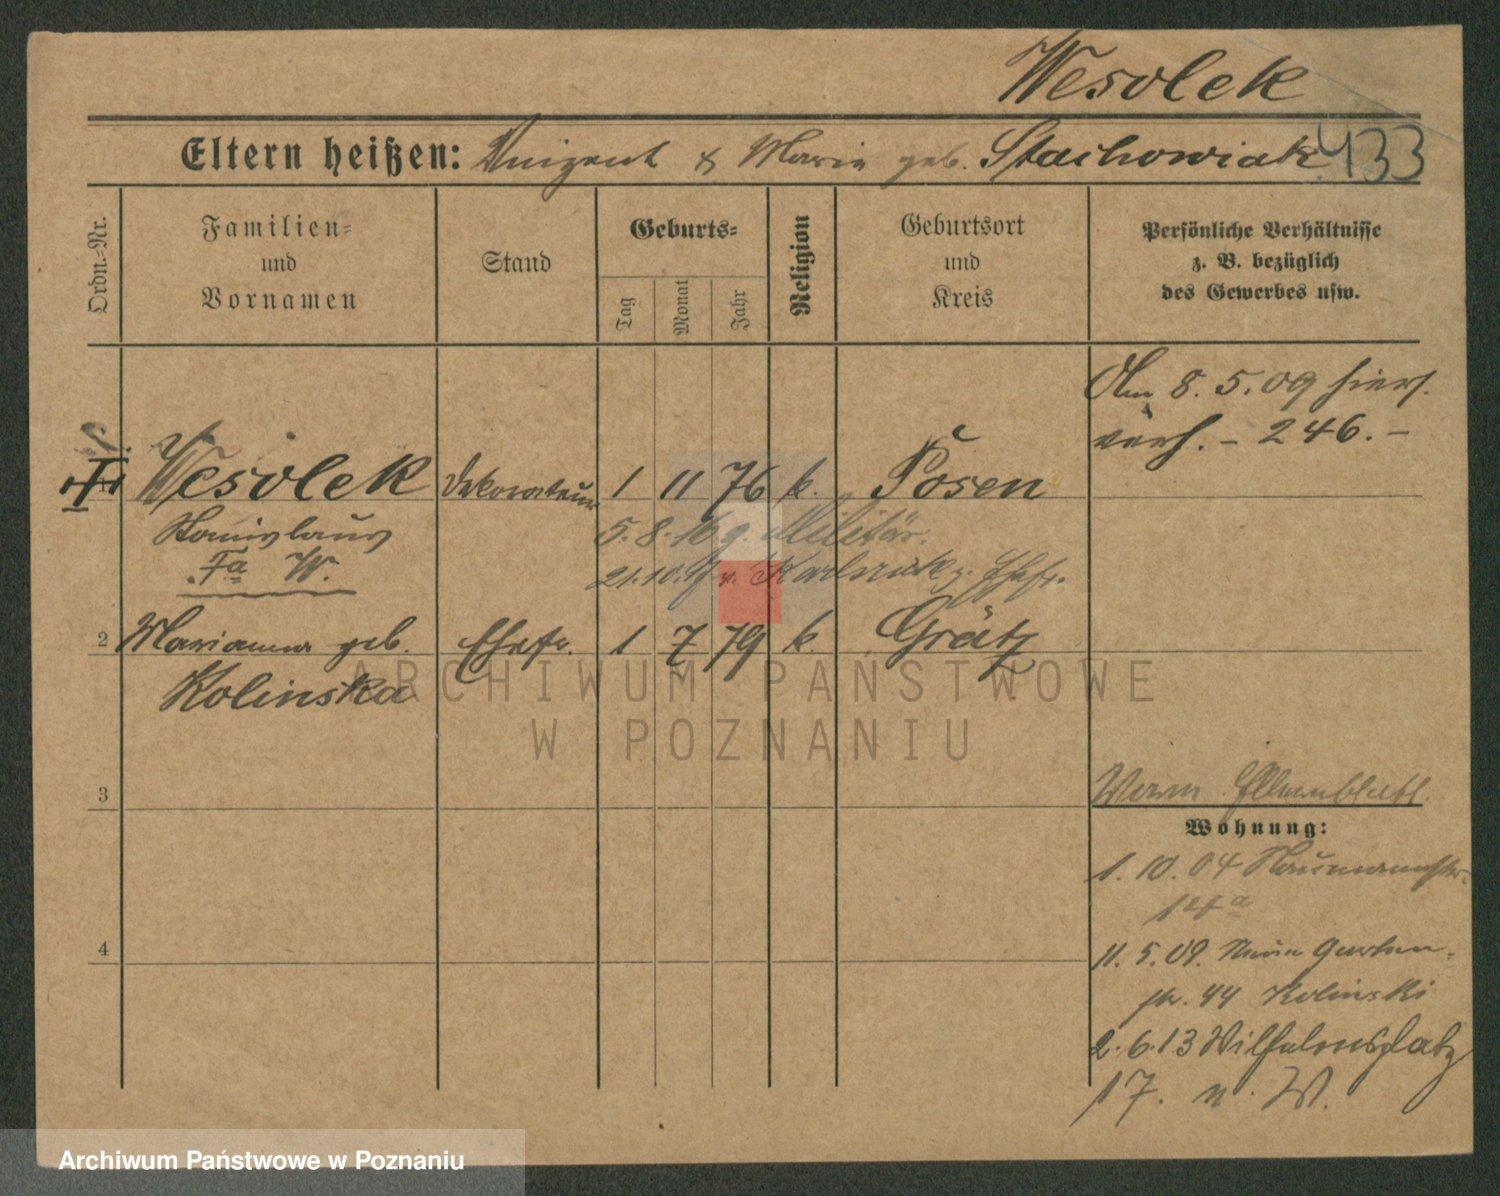 Wesolek
433
Eltern heißen: Vinzent & Marie geb. Stachowiak
Ordn.-Nr.
Familien-
und
Vornamen
Stand
Geburts-
Tag
Monat
Jahr
Religion
Geburtsort
und
Kreis
Persönliche Verhältnisse
z. B. bezüglich
des Gewerbes usw.
Am 8. 5. 09 hiers.
verh. - 246. -
Wesolek Dekorateur 1 11 76 k. Posen
Stanislaus
Fa W.
5. 8. 16 z. Militär.
21. 10. v. Karlsruhe z. Ehefr.
2 Marianna geb. Ehefr. 1 7 79 k. Grätz
Kolinska
3
4
Wohnung:
1. 10. 04 Naumannstr.
14a
11. 5. 09. Neue Garten-
str. 44 Kolinski
2. 6. 13 Wilhelmsplatz
17. n. W.
ARCHIWUM PAŃSTWOWE
W POZNANIU
Archiwum Państwowe w Poznaniu